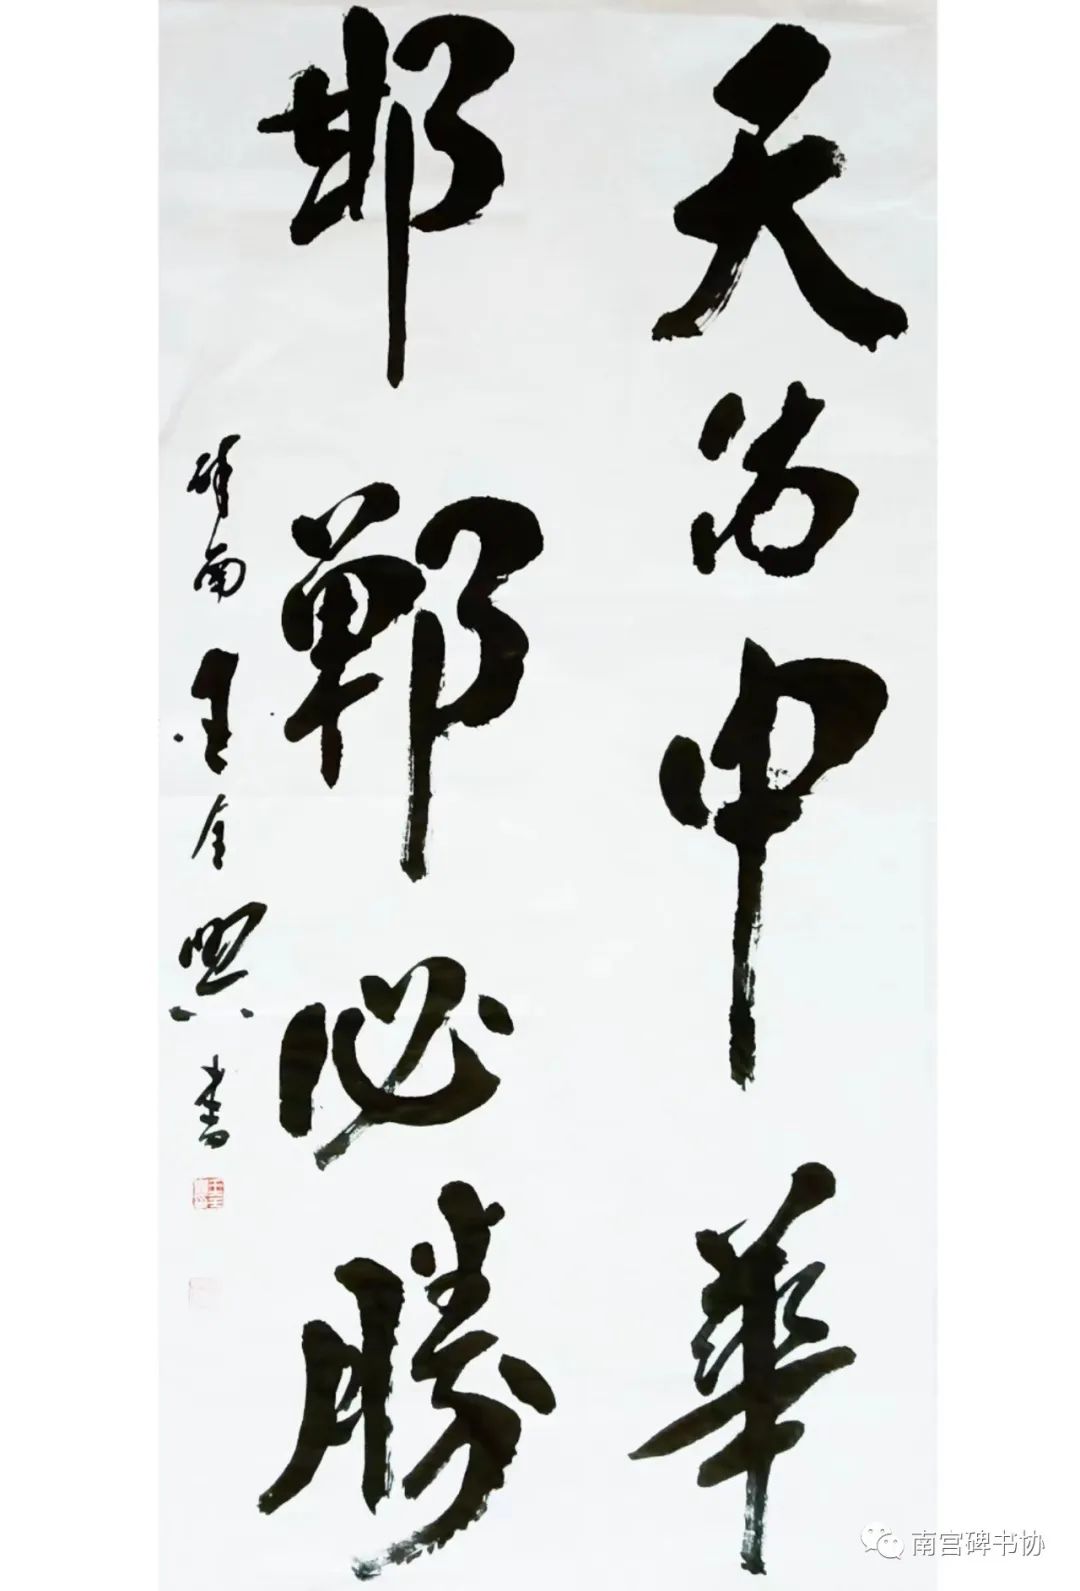 天佑中華
邯鄲必勝
南王全興書
南宫碑书协